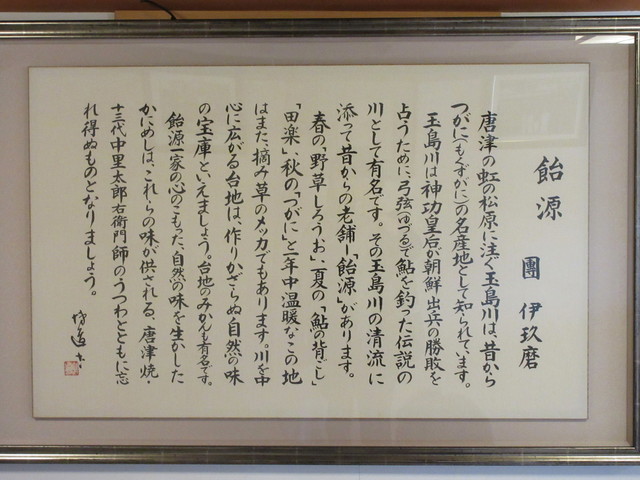 飴源
團 伊玖磨
唐津の虹の松原に注ぐ玉島川は、昔から
つがに(もくずがに)の名産地として知られています。
玉島川は神功皇后が朝鮮出兵の勝敗を
占うために、弓弦(ゆづる)で鮎を釣った伝説の
川として有名です。その玉島川の清流に
添って昔からの老舗「飴源」があります。
春の「野草しろうお」、夏の「鮎の背ごし」
「田楽」、秋の「つがに」と一年中温暖なこの地
はまた、摘み草のメッカでもあります。川を中
心に広がる台地は、作りかざらぬ自然の味
の宝庫といえましょう。台地のみかんも有名です。
飴源一家の心のこもった、自然の味を生かした
かにめしは、これらの味が供される、唐津焼・
十三代中里太郎右衛門師のうつわとともに忘
れ得ぬものとなりましょう。